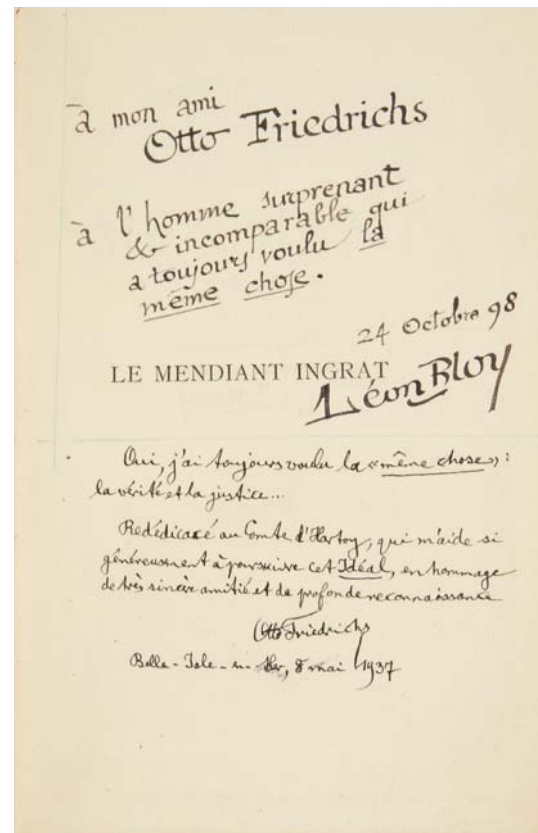 à mon ami
Otto Friedrichs
à l'homme surprenant
& incomparable qui
a toujours voulu la
même chose.
24 Octobre 98
LE MENDIANT INGRAT
Léon Bloy
Oui, j'ai toujours voulu la «même chose» :
la vérité et la justice...
Redédicacé au Comte d'Hartoy, qui m'aide si
généreusement à poursuivre cet Idéal, en hommage
de très sincère amitié et de profonde reconnaissance
Otto Friedrichs
Belle-Isle-en-Mer, 8 mai 1937